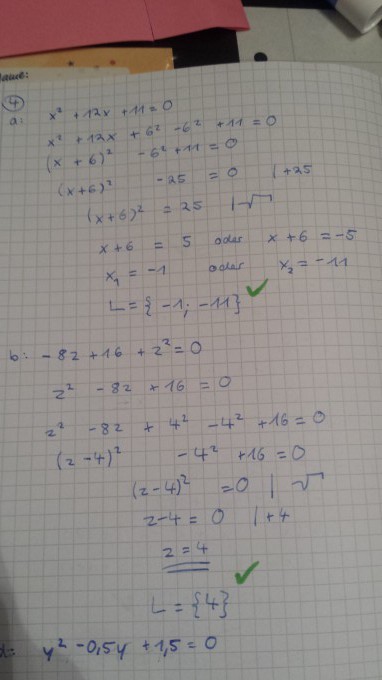 Name:
4
a: x² + 12x + 11 = 0
x² + 12x + 6² - 6² + 11 = 0
(x + 6)² - 6² + 11 = 0
(x+6)² - 25 = 0 | +25
(x+6)² = 25 | √
x+6 = 5 oder x+6 = -5
x₁ = -1 oder x₂ = -11
L = {-1; -11}
b: -8z + 16 + z² = 0
z² - 8z + 16 = 0
z² - 8z + 4² - 4² + 16 = 0
(z-4)² - 4² + 16 = 0
(z-4)² = 0 | √
z-4 = 0 | +4
z = 4
L = {4}
d: y² - 0,5y + 1,5 = 0